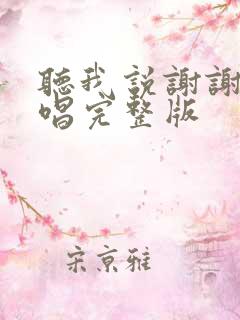 聽我説謝謝
唱完整版
宋京雅